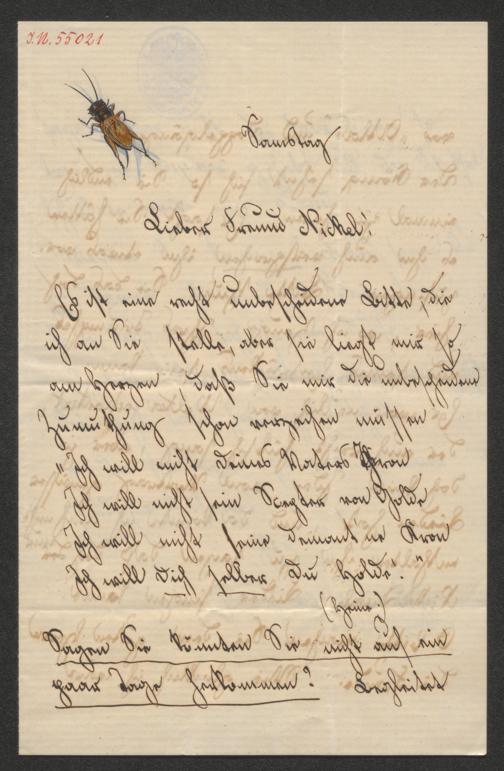 I.N. 55021
Samstag
Lieber Freund Nickel!
Es ist eine recht unbescheidene Bitte, die
ich an Sie stelle, aber sie liegt mir so
am Herzen daß Sie mir die unbescheidene
Zumuthung schon verzeihen müssen
"Ich will nicht deines Vaters Thron
Ich will nicht sein Scepter von Golde
Ich will nicht seine demant'ne Kron
Ich will Dich selber Du Holde."
(Heine)
Sagen Sie könnten Sie nicht auf ein
paar Tage herkommen? Begleitet